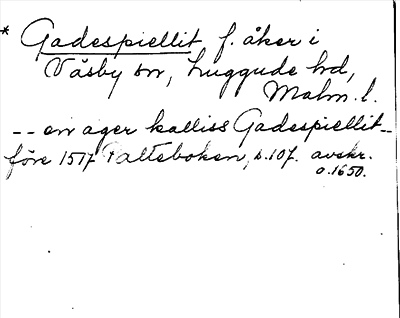 * Gadespiellit f. åker i
Väsby sn, Luggude hd,
Malm. l.
-- en ager kalliss Gadespiellit --
före 1517 Palteboken, s. 107. avskr.
o. 1650.